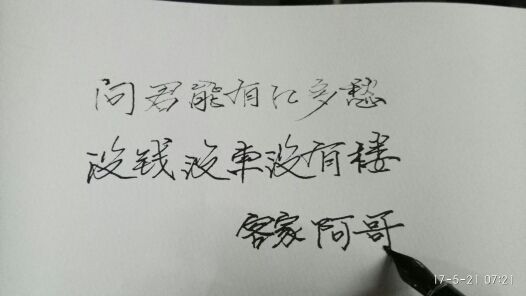 问君能有几多愁
没钱没车没有楼
客家阿哥
17-5-21 07:21